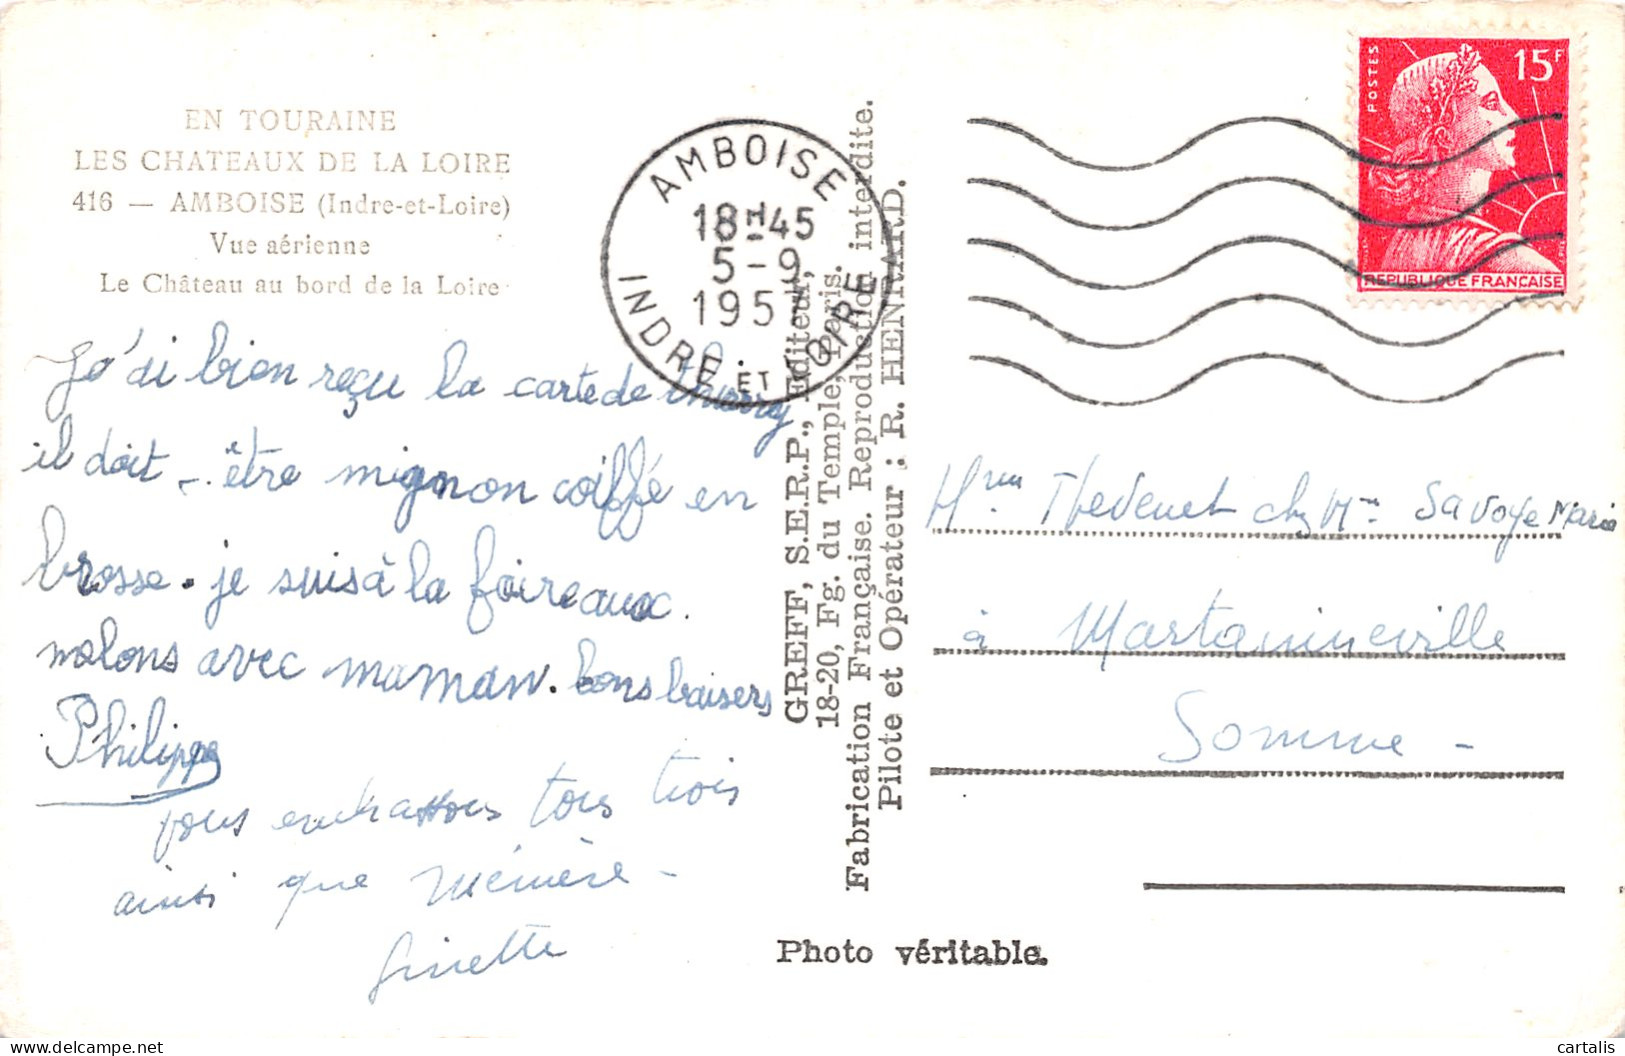 EN TOURAINE
LES CHATEAUX DE LA LOIRE
416 — AMBOISE (Indre-et-Loire)
Vue aérienne
Le Château au bord de la Loire
J'ai bien reçu la carte de thierry
il doit être mignon coiffé en
brosse. je suis à la foire aux
melons avec maman. bons baisers
Philippe
vous embrassons tous trois
ainsi que Mémère -
Ginette
AMBOISE
18H45
5-9
195
INDRE ET LOIRE
GREFF, S.E.R.P., Editeur,
18-20, Fg. du Temple, Paris.
Fabrication Française. Reproduction interdite.
Pilote et Opérateur : R. HENRARD.
Photo véritable.
POSTES
15F
REPUBLIQUE FRANÇAISE
Thevenet chez Mme Savoye Marie
à Martainneville
Somme -
cartalis